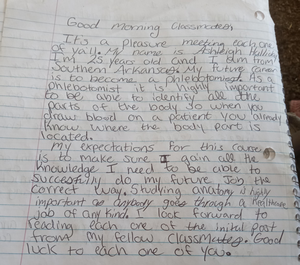 Good Morning Classmates
It's a pleasure meeting each one
of ya'll. My name is Ashleigh
I'm 25 years old and I'm from
Southern Arkansas. My future career
is to become a Phlebotomist. As a
phlebotomist it is highly important
to be able to identify all the
parts of the body so when you
draw blood on a patient you already
know where the body part is
located.
My expectations for this course
is to make sure I gain all the
knowledge I need to be able to
successfully do my future job the
correct way. Studying anatomy is highly
important as anybody goes through a healthcare
job of any kind. I look forward to
reading each one of the initial post
from my fellow classmates. Good
luck to each one of you.